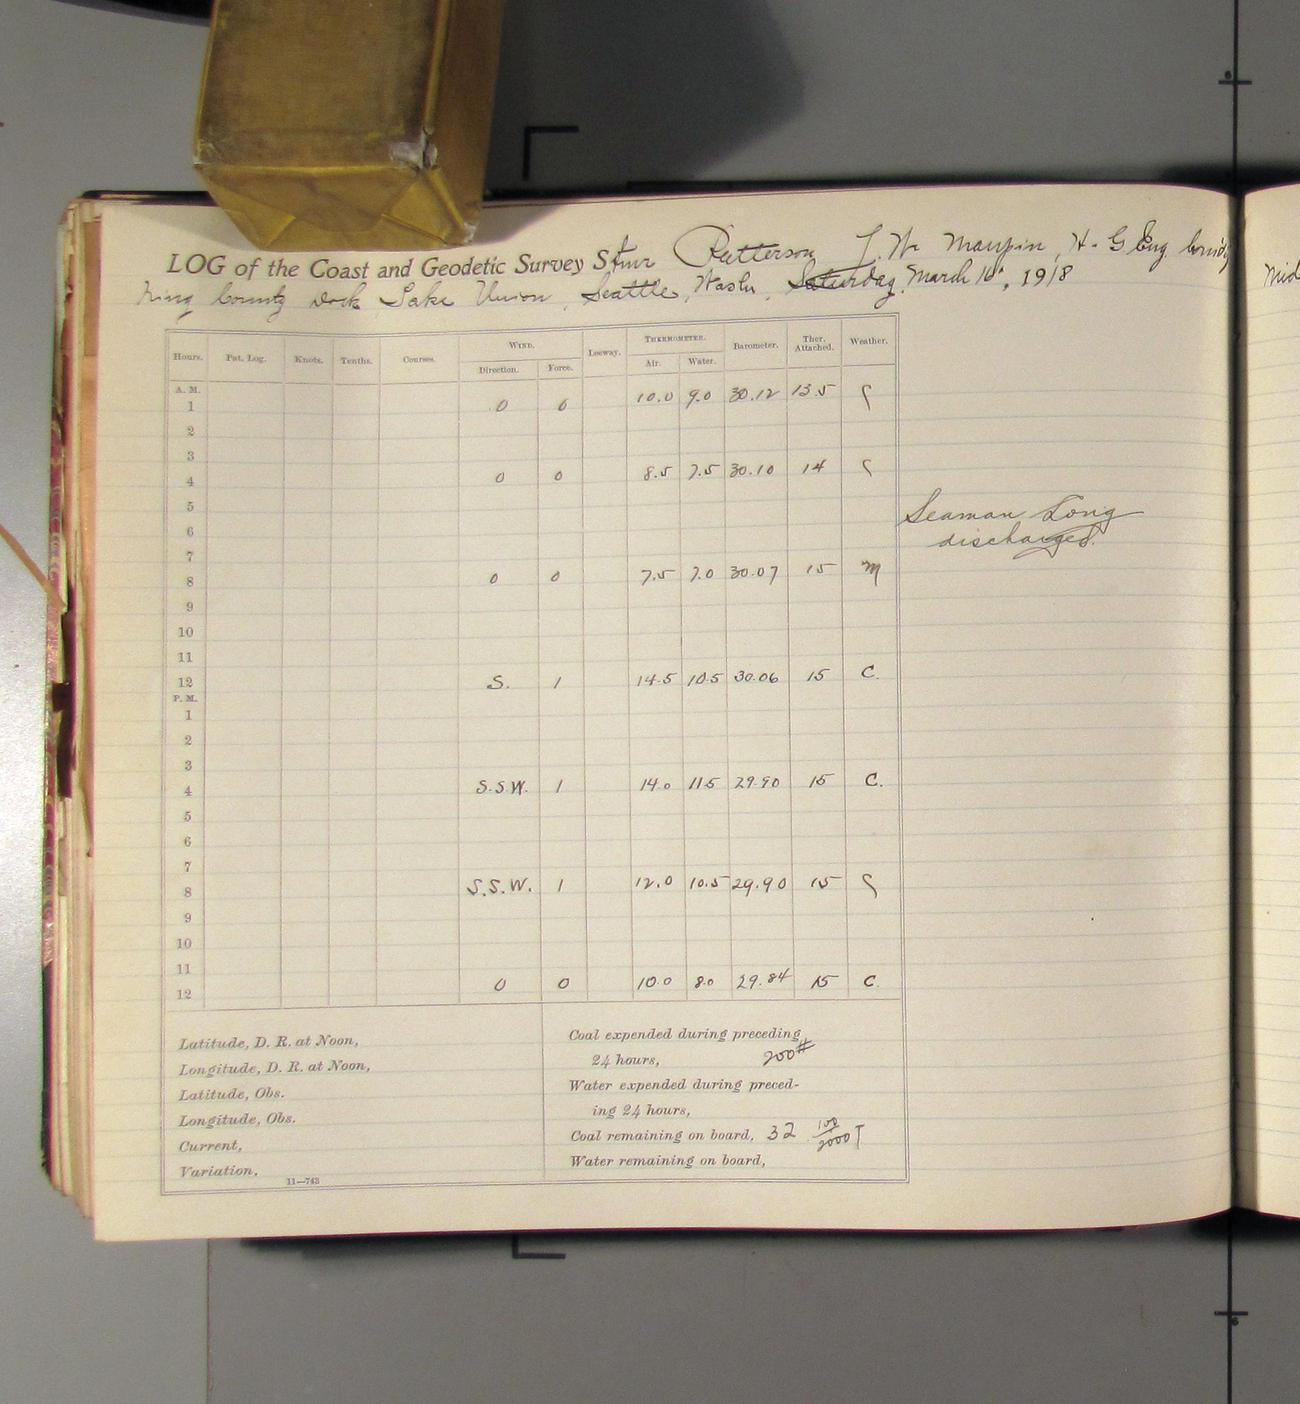 LOG of the Coast and Geodetic Survey Stmr Patterson J. W. Maupin, H. & G. Eng. Comdg
King County Dock Lake Union, Seattle, Wash, Saturday, March 16, 1918
Hours. Pat. Log. Knots. Tenths. Courses. WIND. Leeway. THERMOMETER. Barometer. Ther. Attached. Weather.
Direction. Force. Air. Water.
A. M.
1 0 0 10.0 9.0 30.12 13.5
2
3
4 0 0 8.5 7.5 30.10 14
5
6
Seaman Long
discharged.
7
8 0 0 7.5 7.0 30.07 15 m
9
10
11
12 S. 1 14.5 10.5 30.06 15 C.
P. M.
1
2
3
4 S.S.W. 1 14.0 11.5 29.90 15 C.
5
6
7
8 S.S.W. 1 12.0 10.5 29.90 15
9
10
11
12 0 0 10.0 8.0 29.84 15 C.
Latitude, D. R. at Noon,
Longitude, D. R. at Noon,
Latitude, Obs.
Longitude, Obs.
Current,
Variation,
11—743
Coal expended during preceding
24 hours, 200#
Water expended during preced-
ing 24 hours,
Coal remaining on board, 32 100/2000 T
Water remaining on board,
Mid